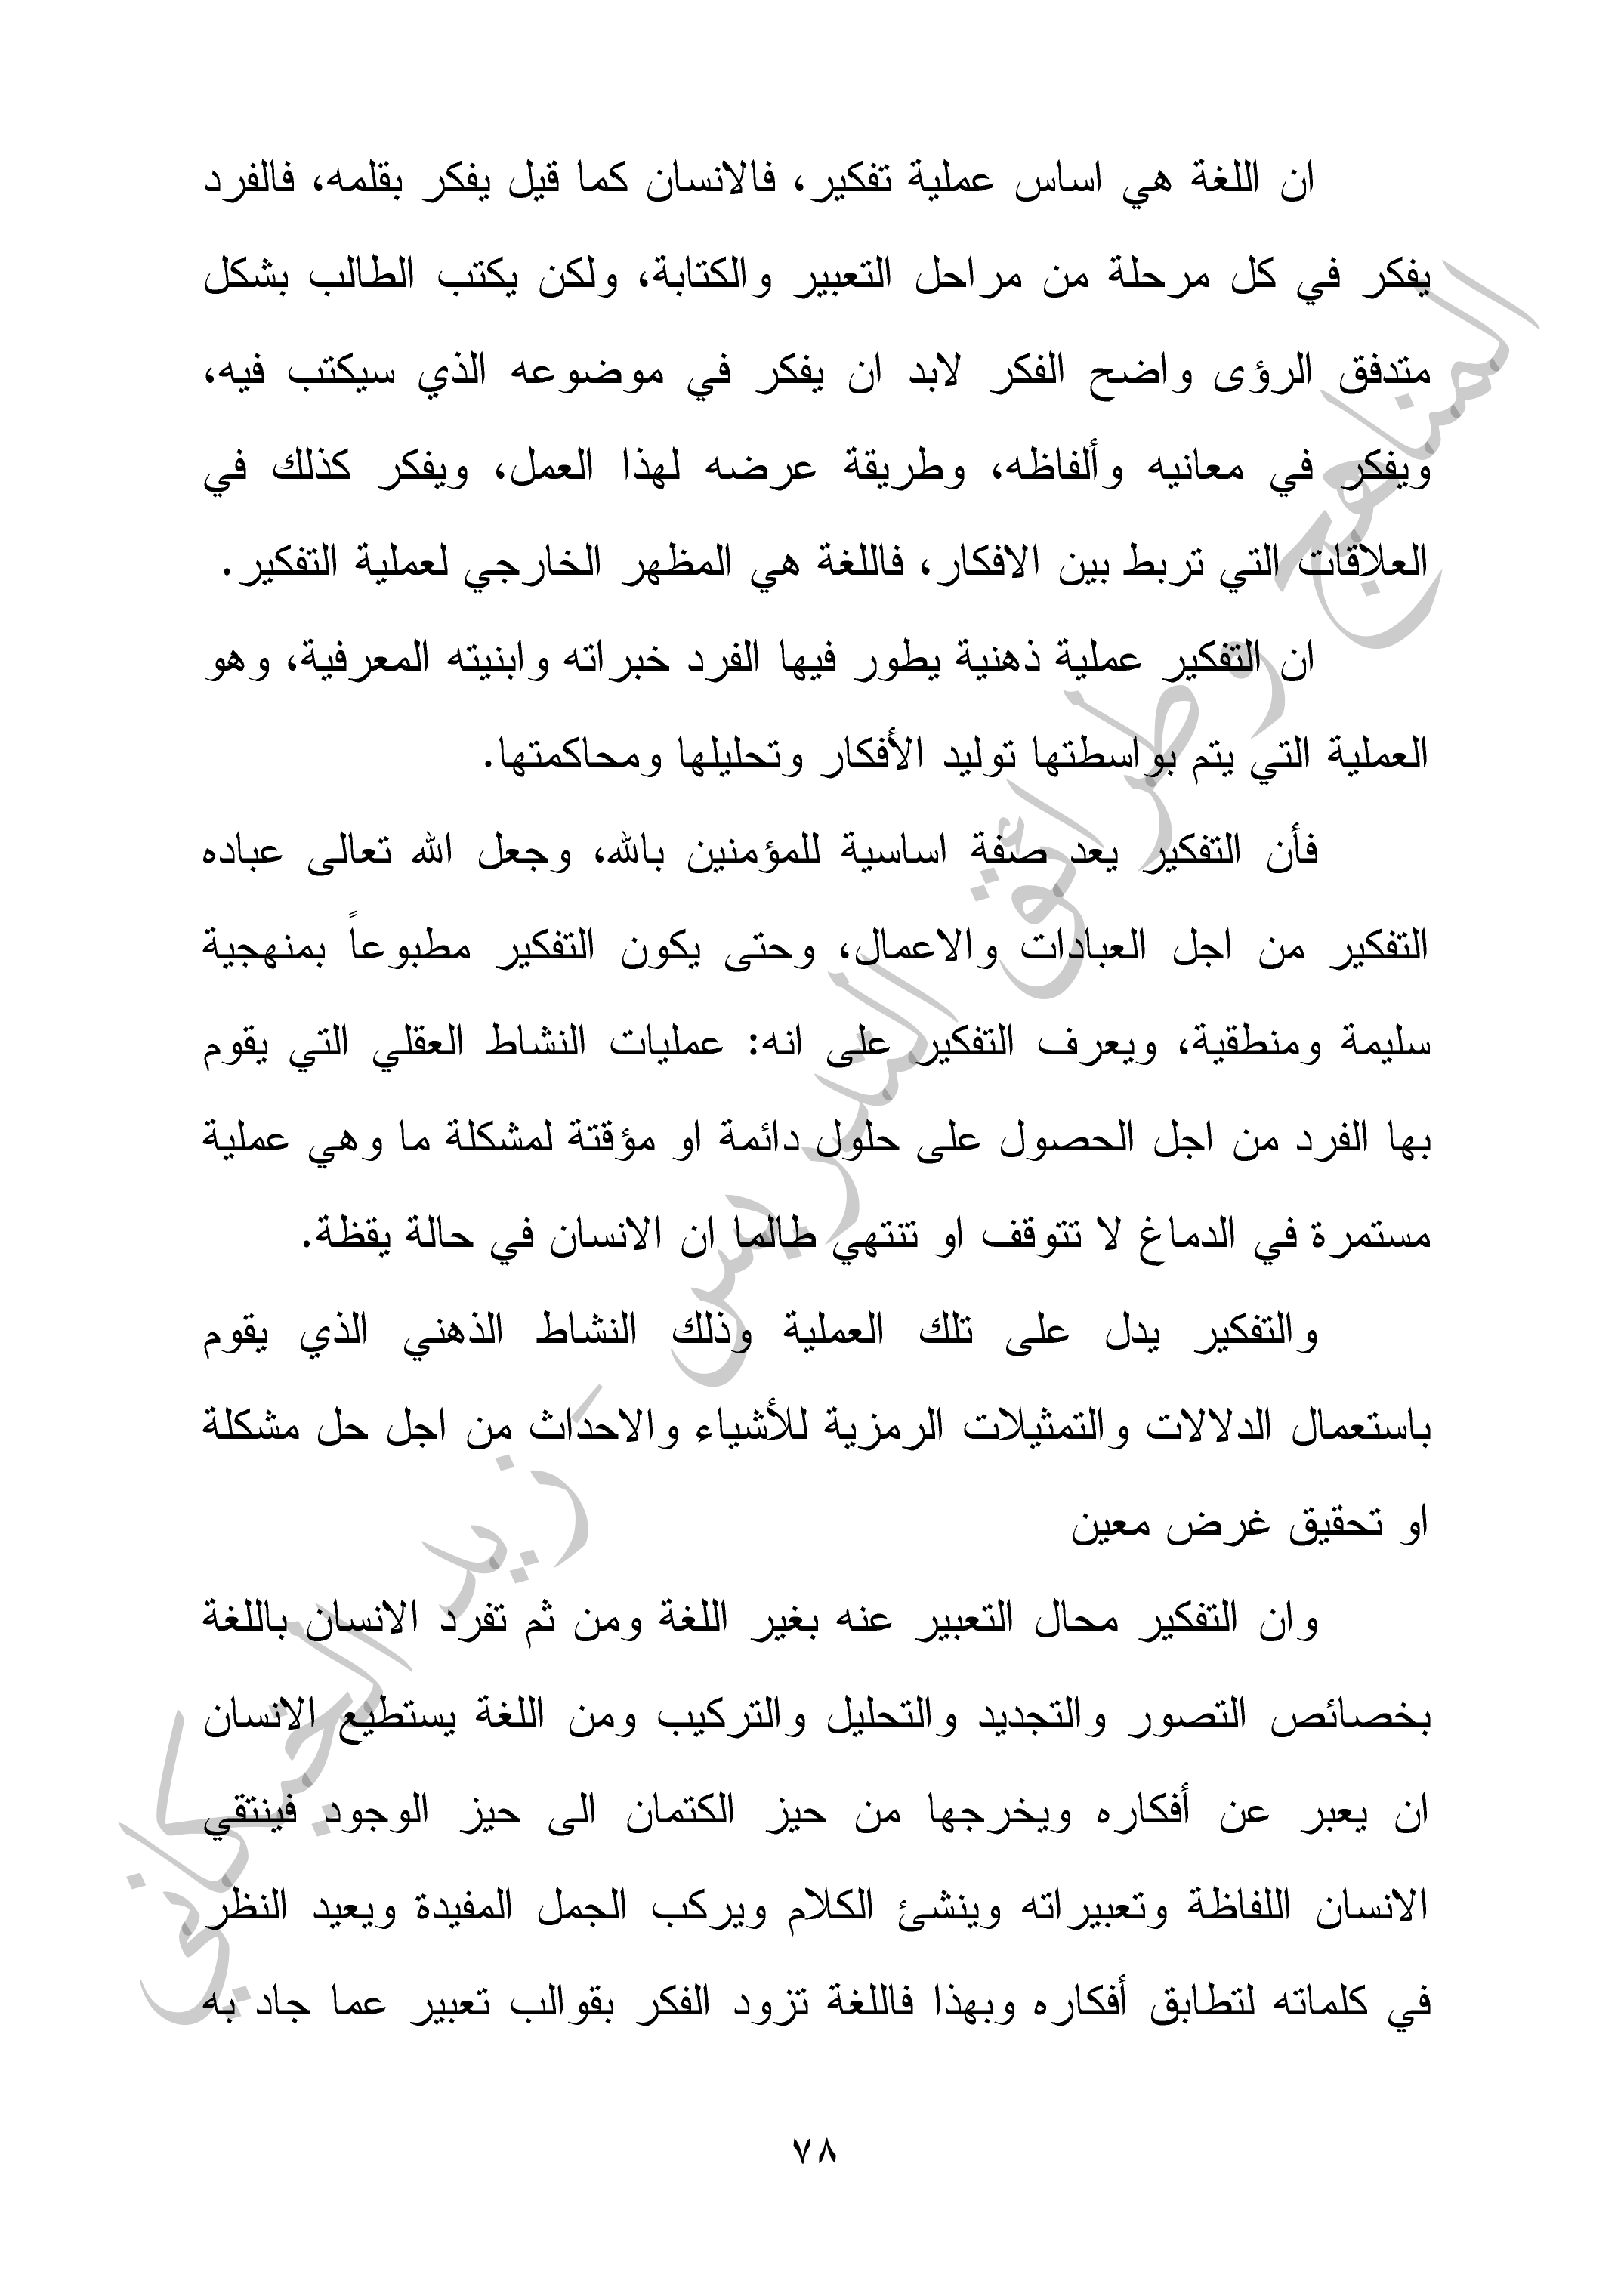 ان اللغة هي اساس عملية تفكير، فالانسان كما قيل يفكر بقلمه، فالفرد
يفكر في كل مرحلة من مراحل التعبير والكتابة، ولكن يكتب الطالب بشكل
متدفق الرؤى واضح الفكر لابد ان يفكر في موضوعه الذي سيكتب فيه،
ويفكر في معانيه وألفاظه، وطريقة عرضه لهذا العمل، ويفكر كذلك في
العلاقات التي تربط بين الافكار، فاللغة هي المظهر الخارجي لعملية التفكير.
ان التفكير عملية ذهنية يطور فيها الفرد خبراته وابنيته المعرفية، وهو
العملية التي يتم بواسطتها توليد الأفكار وتحليلها ومحاكمتها.
فأن التفكير يعد صفة اساسية للمؤمنين بالله، وجعل الله تعالى عباده
التفكير من اجل العبادات والاعمال، وحتى يكون التفكير مطبوعاً بمنهجية
سليمة ومنطقية، ويعرف التفكير على انه: عمليات النشاط العقلي التي يقوم
بها الفرد من اجل الحصول على حلول دائمة او مؤقتة لمشكلة ما وهي عملية
مستمرة في الدماغ لا تتوقف او تنتهي طالما ان الانسان في حالة يقظة.
والتفكير يدل على تلك العملية وذلك النشاط الذهني الذي يقوم
باستعمال الدلالات والتمثيلات الرمزية للأشياء والاحداث من اجل حل مشكلة
او تحقيق غرض معين
وان التفكير محال التعبير عنه بغير اللغة ومن ثم تفرد الانسان باللغة
بخصائص التصور والتجديد والتحليل والتركيب ومن اللغة يستطيع الانسان
ان يعبر عن أفكاره ويخرجها من حيز الكتمان الى حيز الوجود فينتقي
الانسان اللفاظة وتعبيراته وينشئ الكلام ويركب الجمل المفيدة ويعيد النظر
في كلماته لتطابق أفكاره وبهذا فاللغة تزود الفكر بقوالب تعبير عما جاد به
٧٨
المناهج وطرائق التدريس - زيد الخيكاني